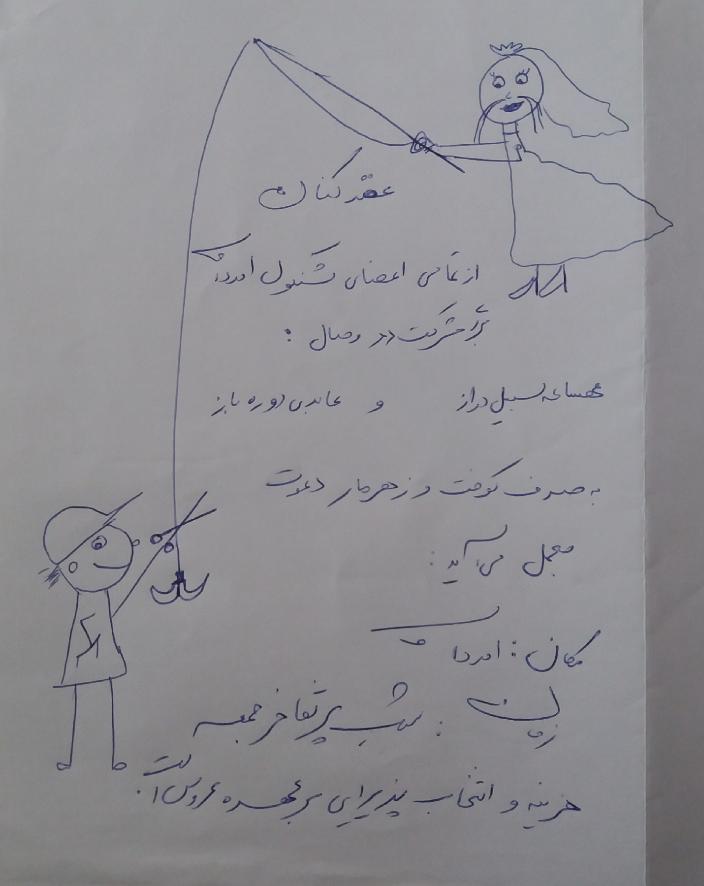 عقد کنان
از تمامی اعضای شنگول امرداد
برای شرکت در وصال :
سبیل دراز و عابدی دوره باز
به صرف کوفت و زهرمار دعوت
بعمل می آید :
مکان : امرداد
زمان : شب پر تفاخر جمعه
هزینه و انتخاب پذیرایی بر عهده عروس است.